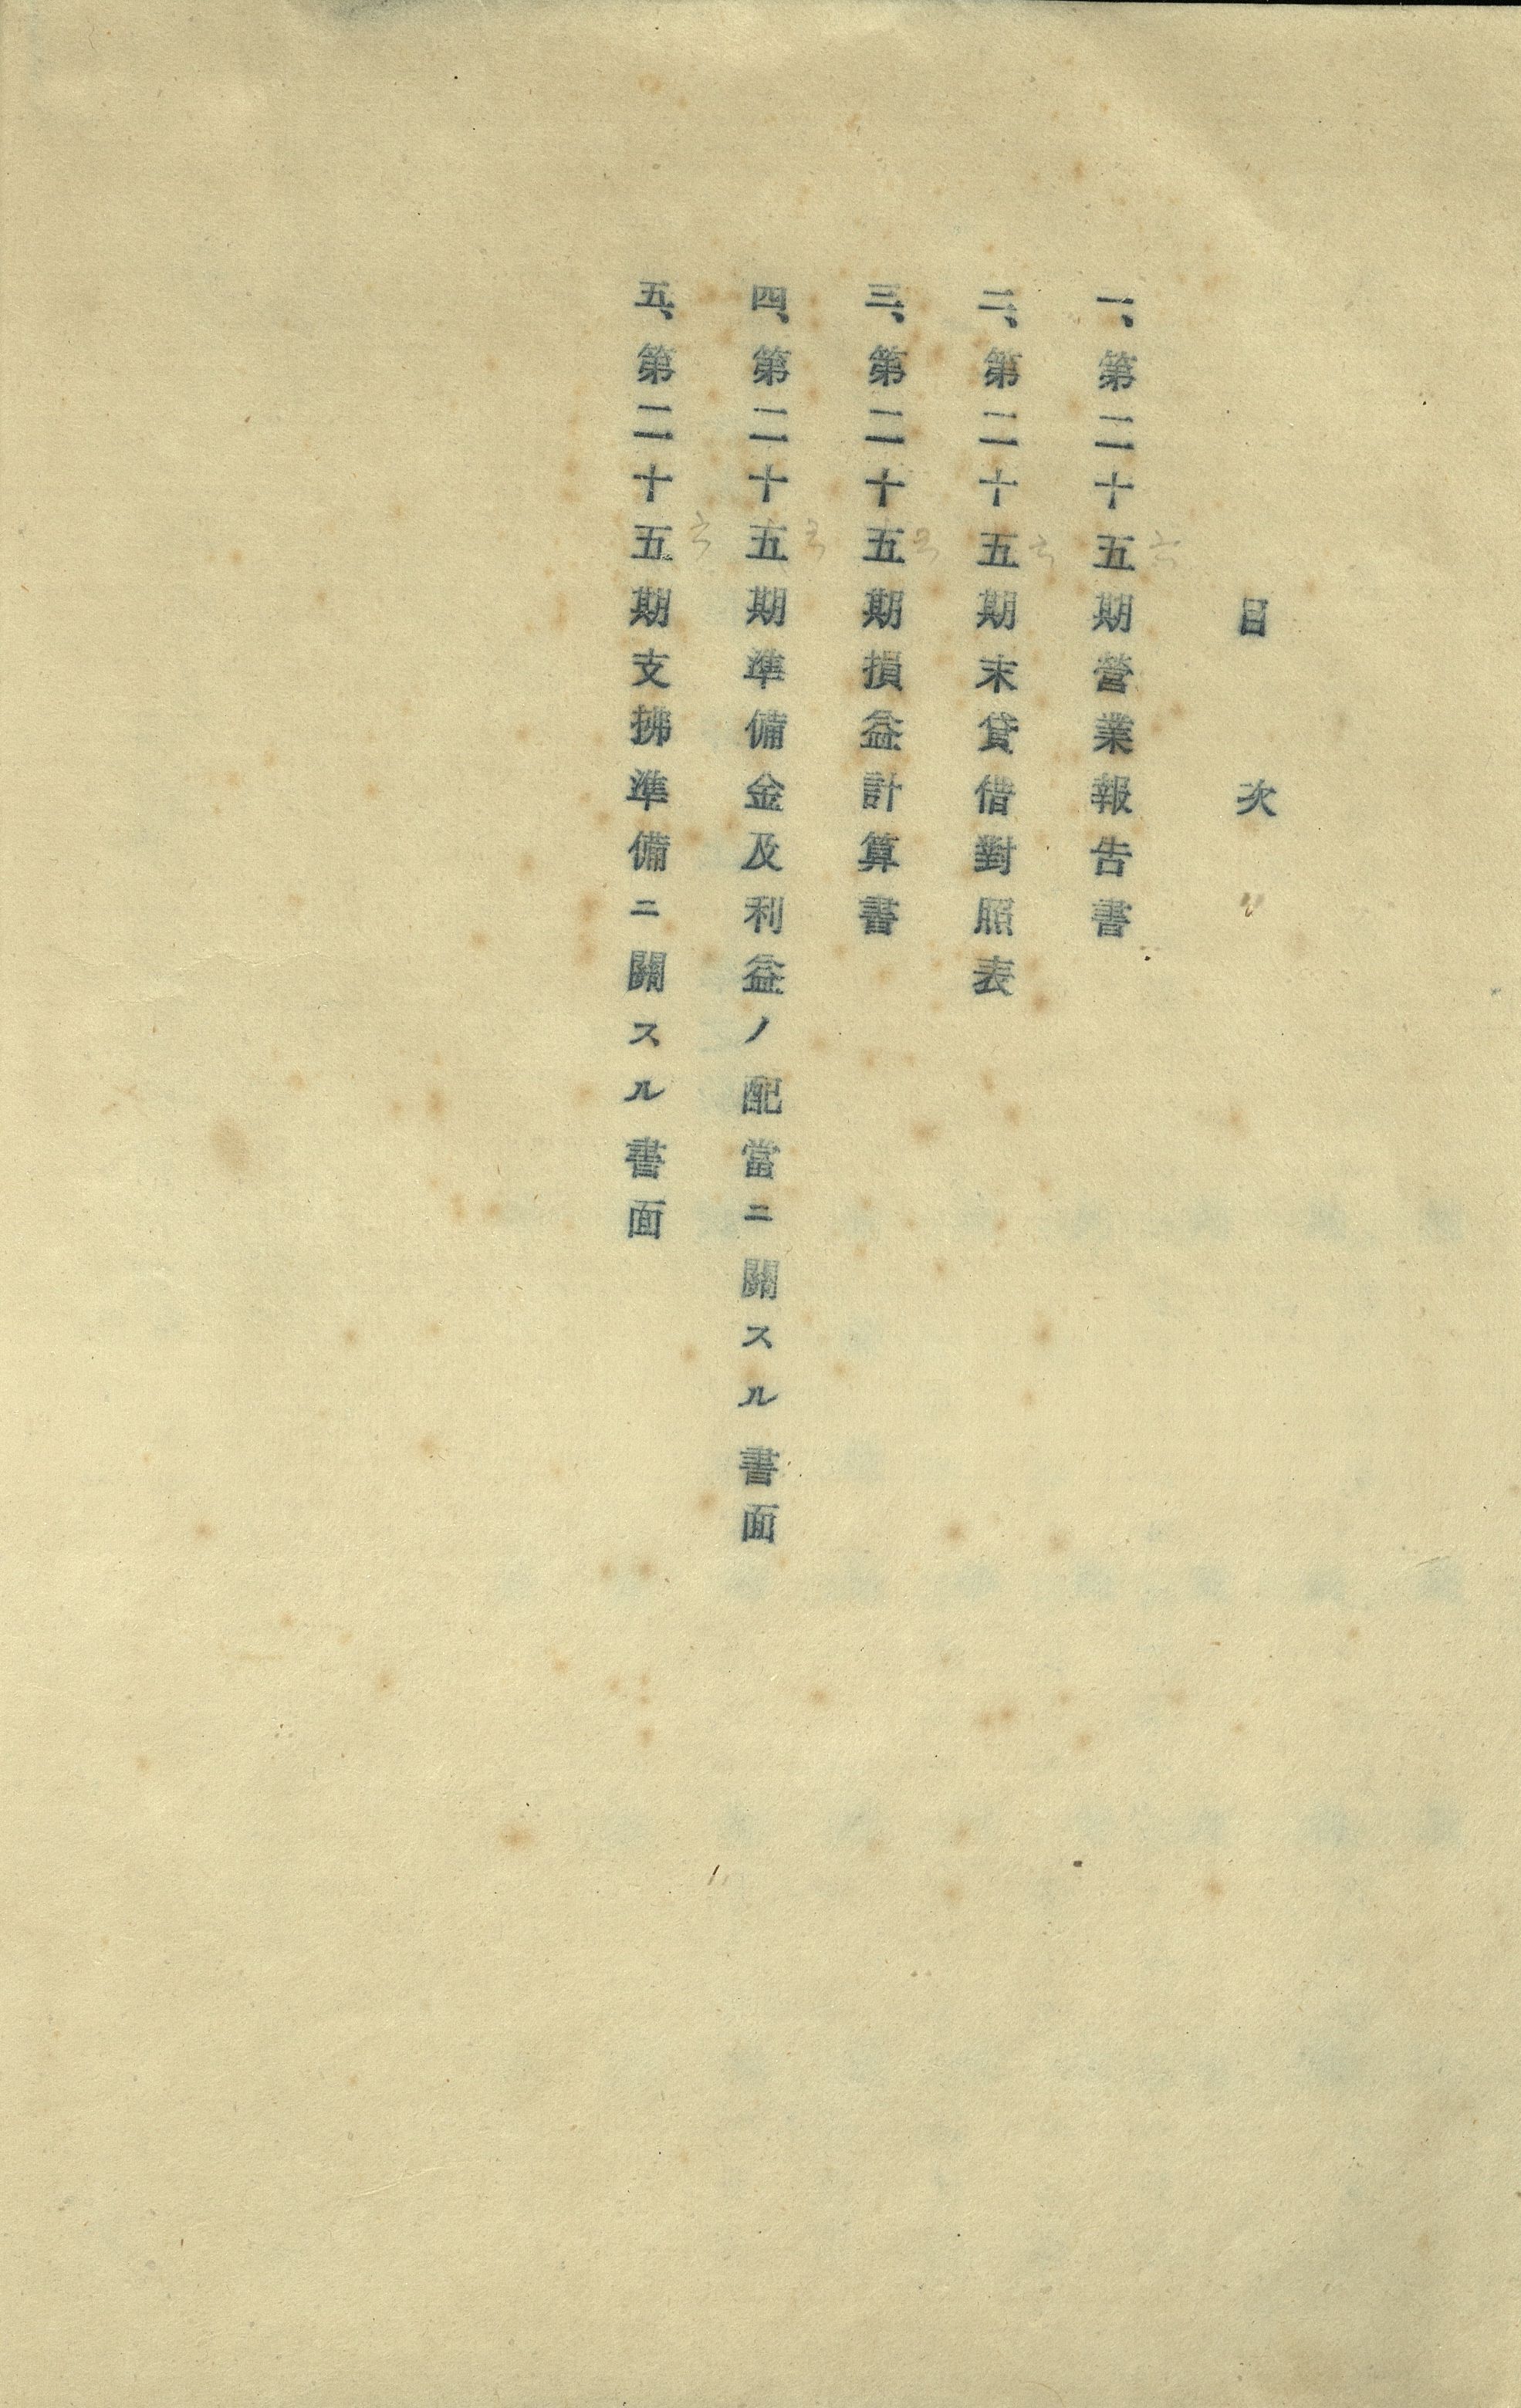 目次
一、第二十五期營業報告書
二、第二十五期末貸借對照表
三、第二十五期損益計算書
四、第二十五期準備金及利益ノ配當ニ關スル書面
五、第二十五期支拂準備ニ關スル書面